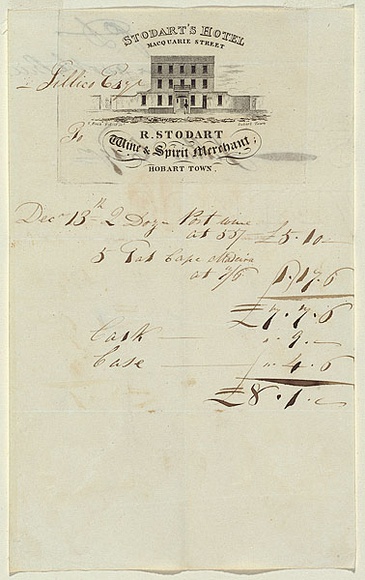 STODART'S HOTEL
MACQUARIE STREET
Gillies Esqr
To
R. STODART
Wine & Spirit Merchant,
HOBART TOWN.
Decr 13th 2 Dozn Port wine
at 55/- £5.10 -
5 Gal Cape Madeira
at 7/6 1.17.6
£7.7.6
Cask - 9. -
Case " 4.6
£8.1. -